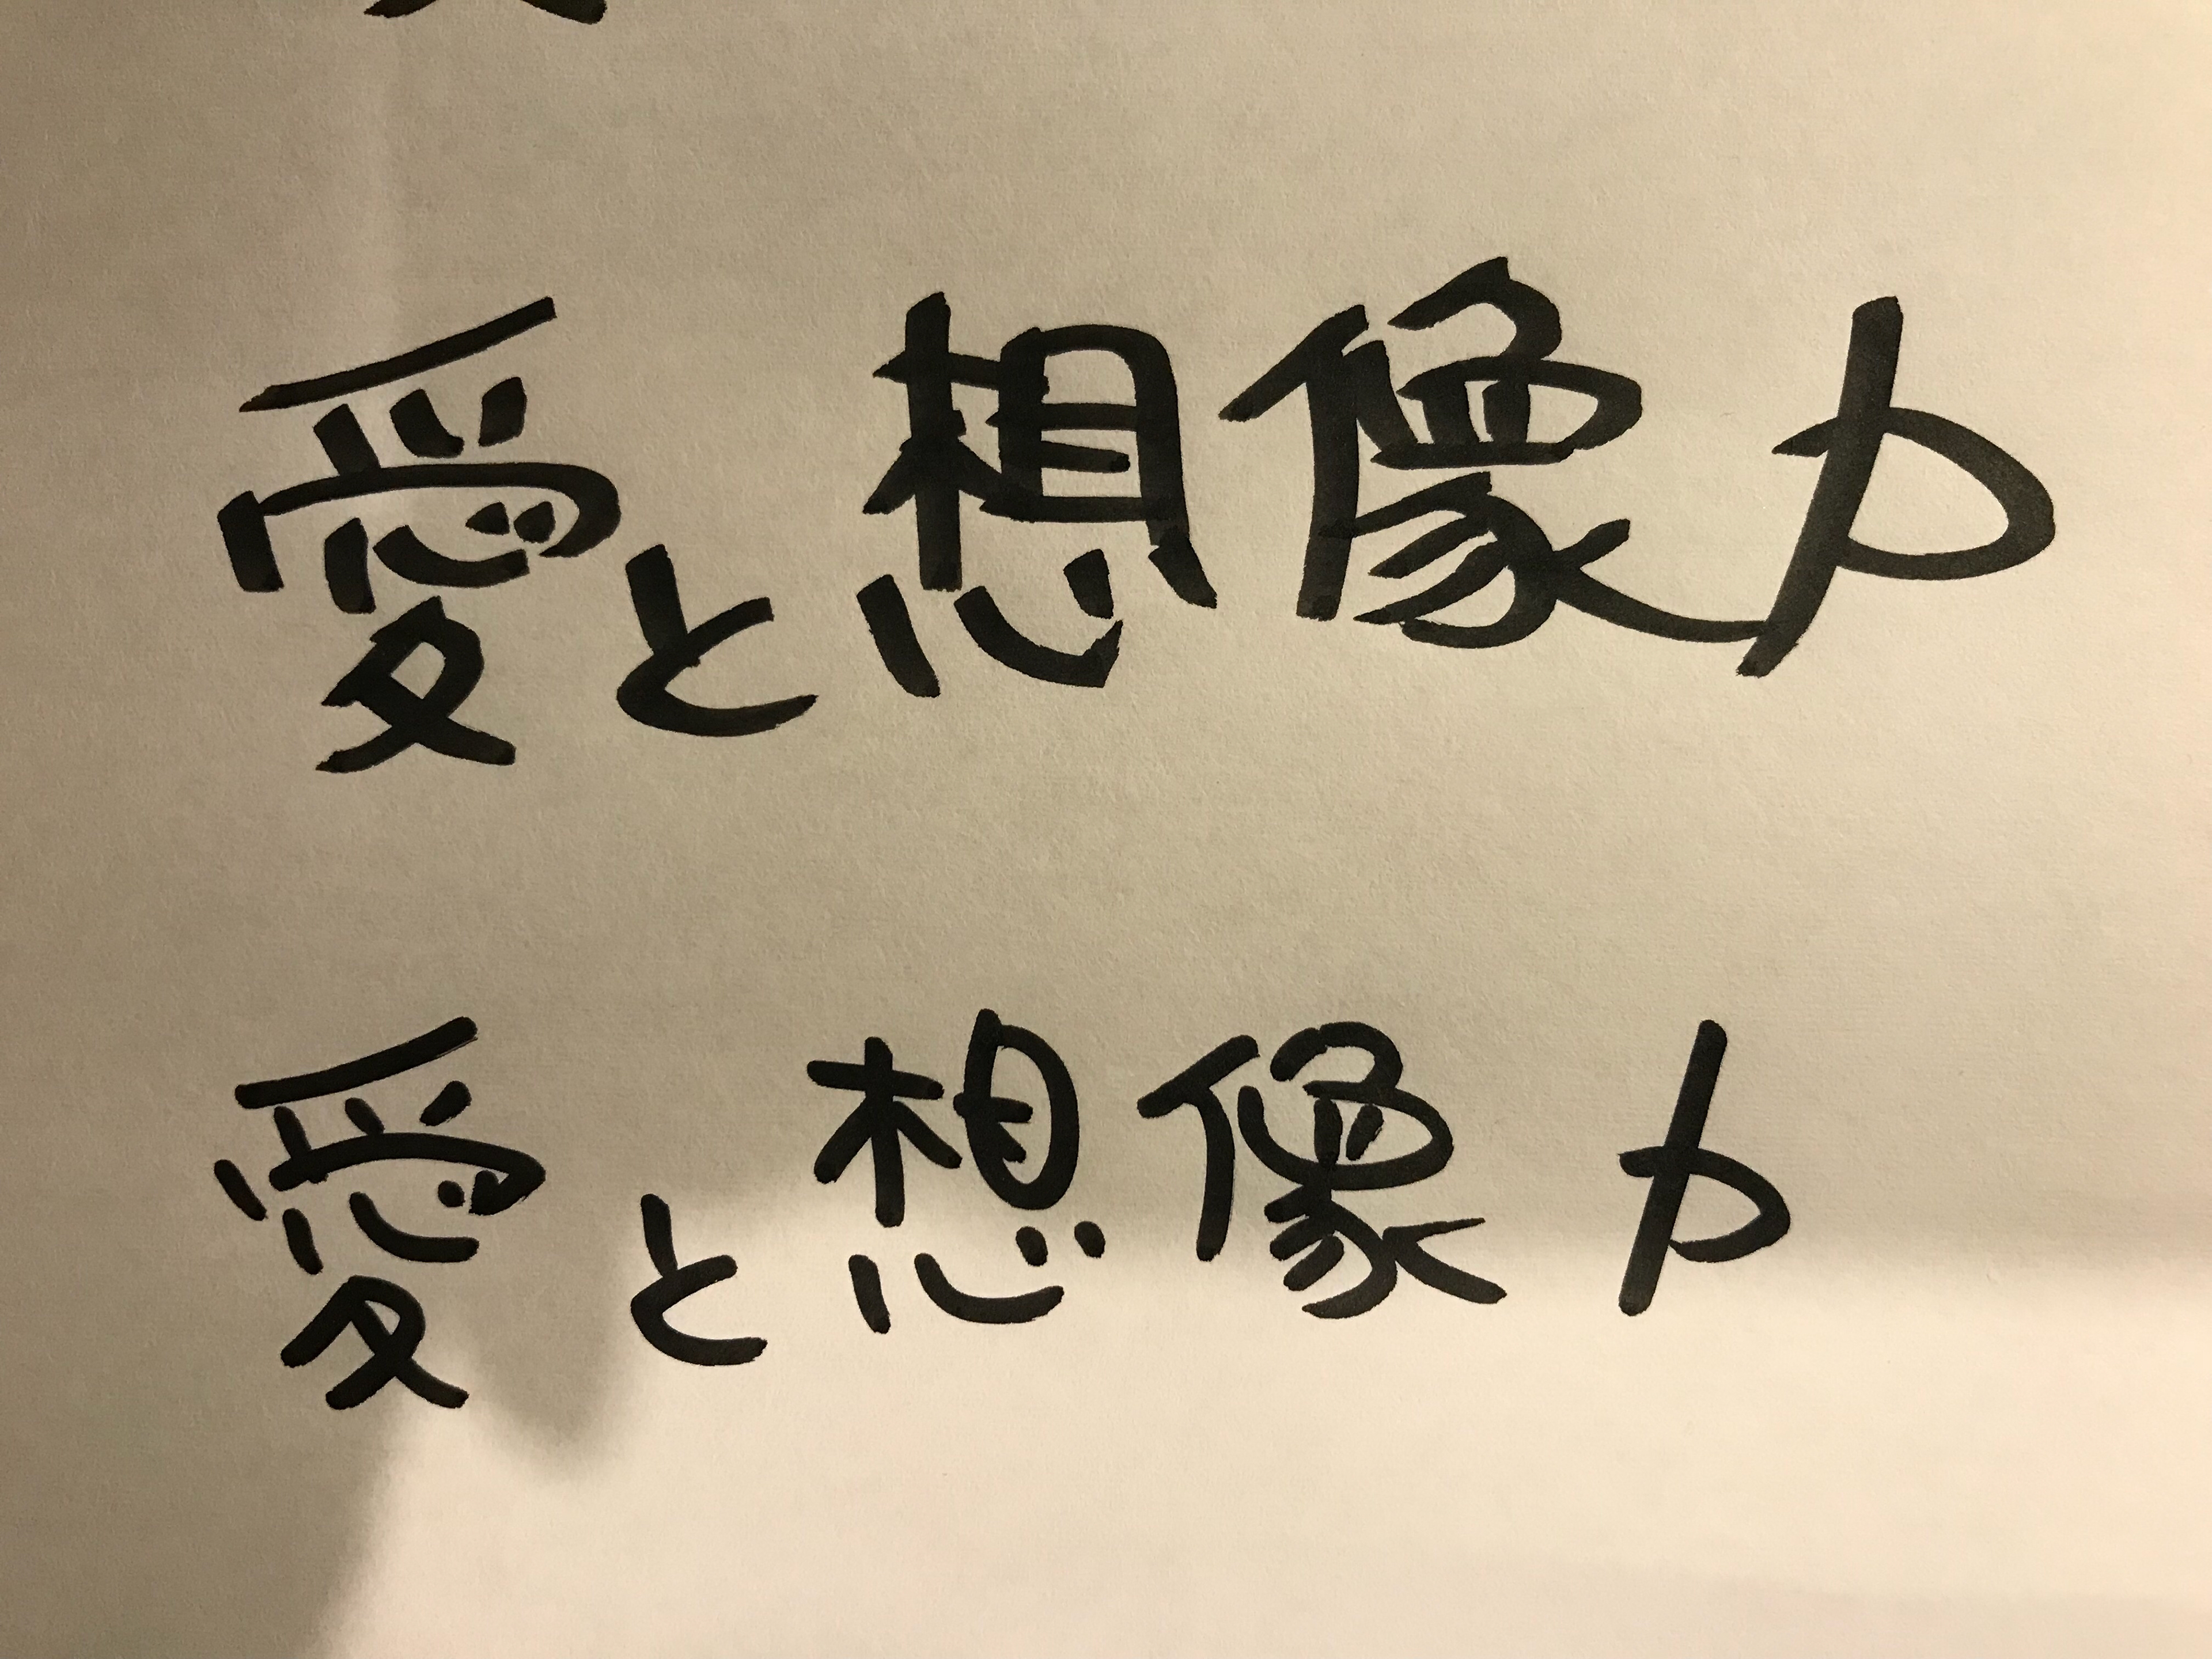 愛と想像力
愛と想像力